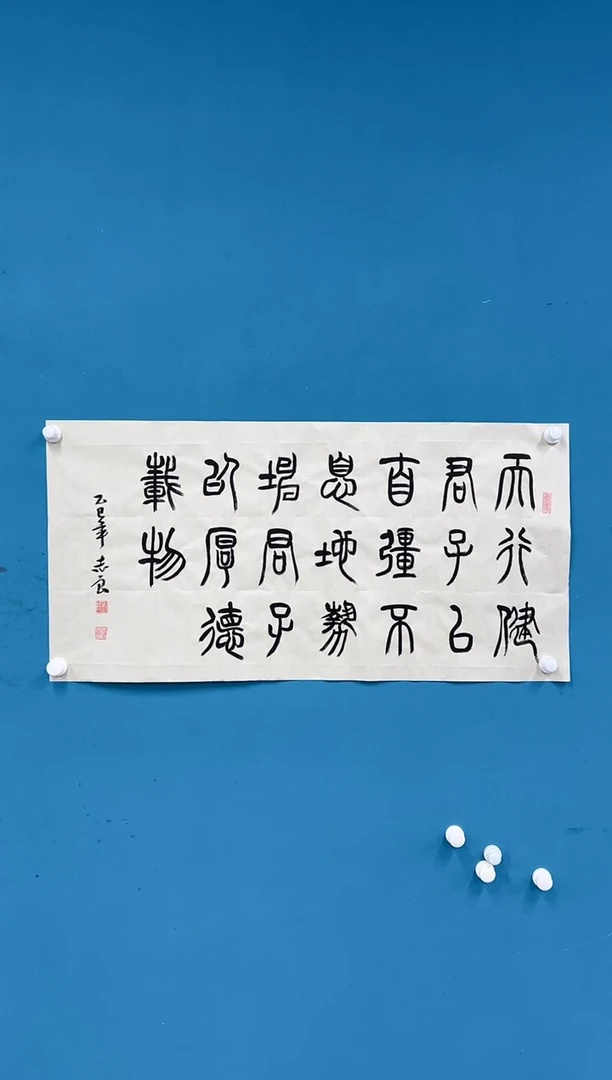 天行健
君子以
自彊不
息地勢
坤君子
以厚德
載物
乙巳年 志良